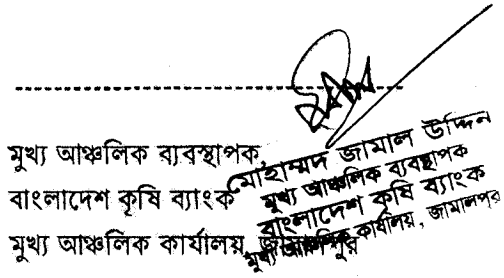 মুখ্য আঞ্চলিক ব্যবস্থাপক,
বাংলাদেশ কৃষি ব্যাংক
মুখ্য আঞ্চলিক কার্যালয়,
মোহাম্মদ জামাল উদ্দিন
মুখ্য আঞ্চলিক ব্যবস্থাপক
বাংলাদেশ কৃষি ব্যাংক
মুখ্য আঞ্চলিক কার্যালয়, জামালপুর